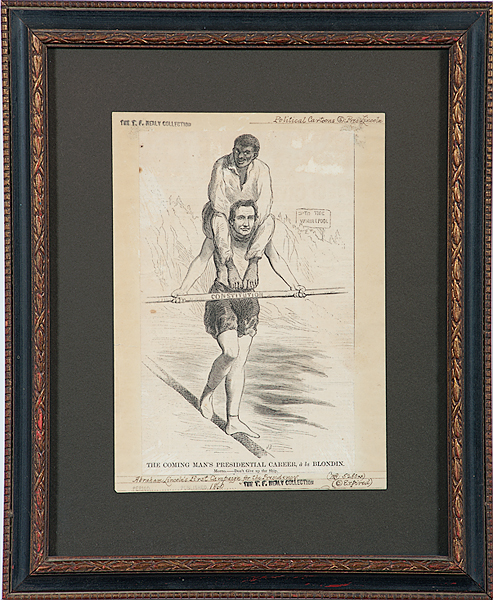 THE T. F. HEALY COLLECTION
Political Cartoons
TO THE
WHIRLPOOL
CONSTITUTION
THE COMING MAN'S PRESIDENTIAL CAREER, à la BLONDIN.
Motto.—Don't Give up the Ship.
Abraham Lincoln's First Campaign for the Presidency
1860
THE T. F. HEALY COLLECTION